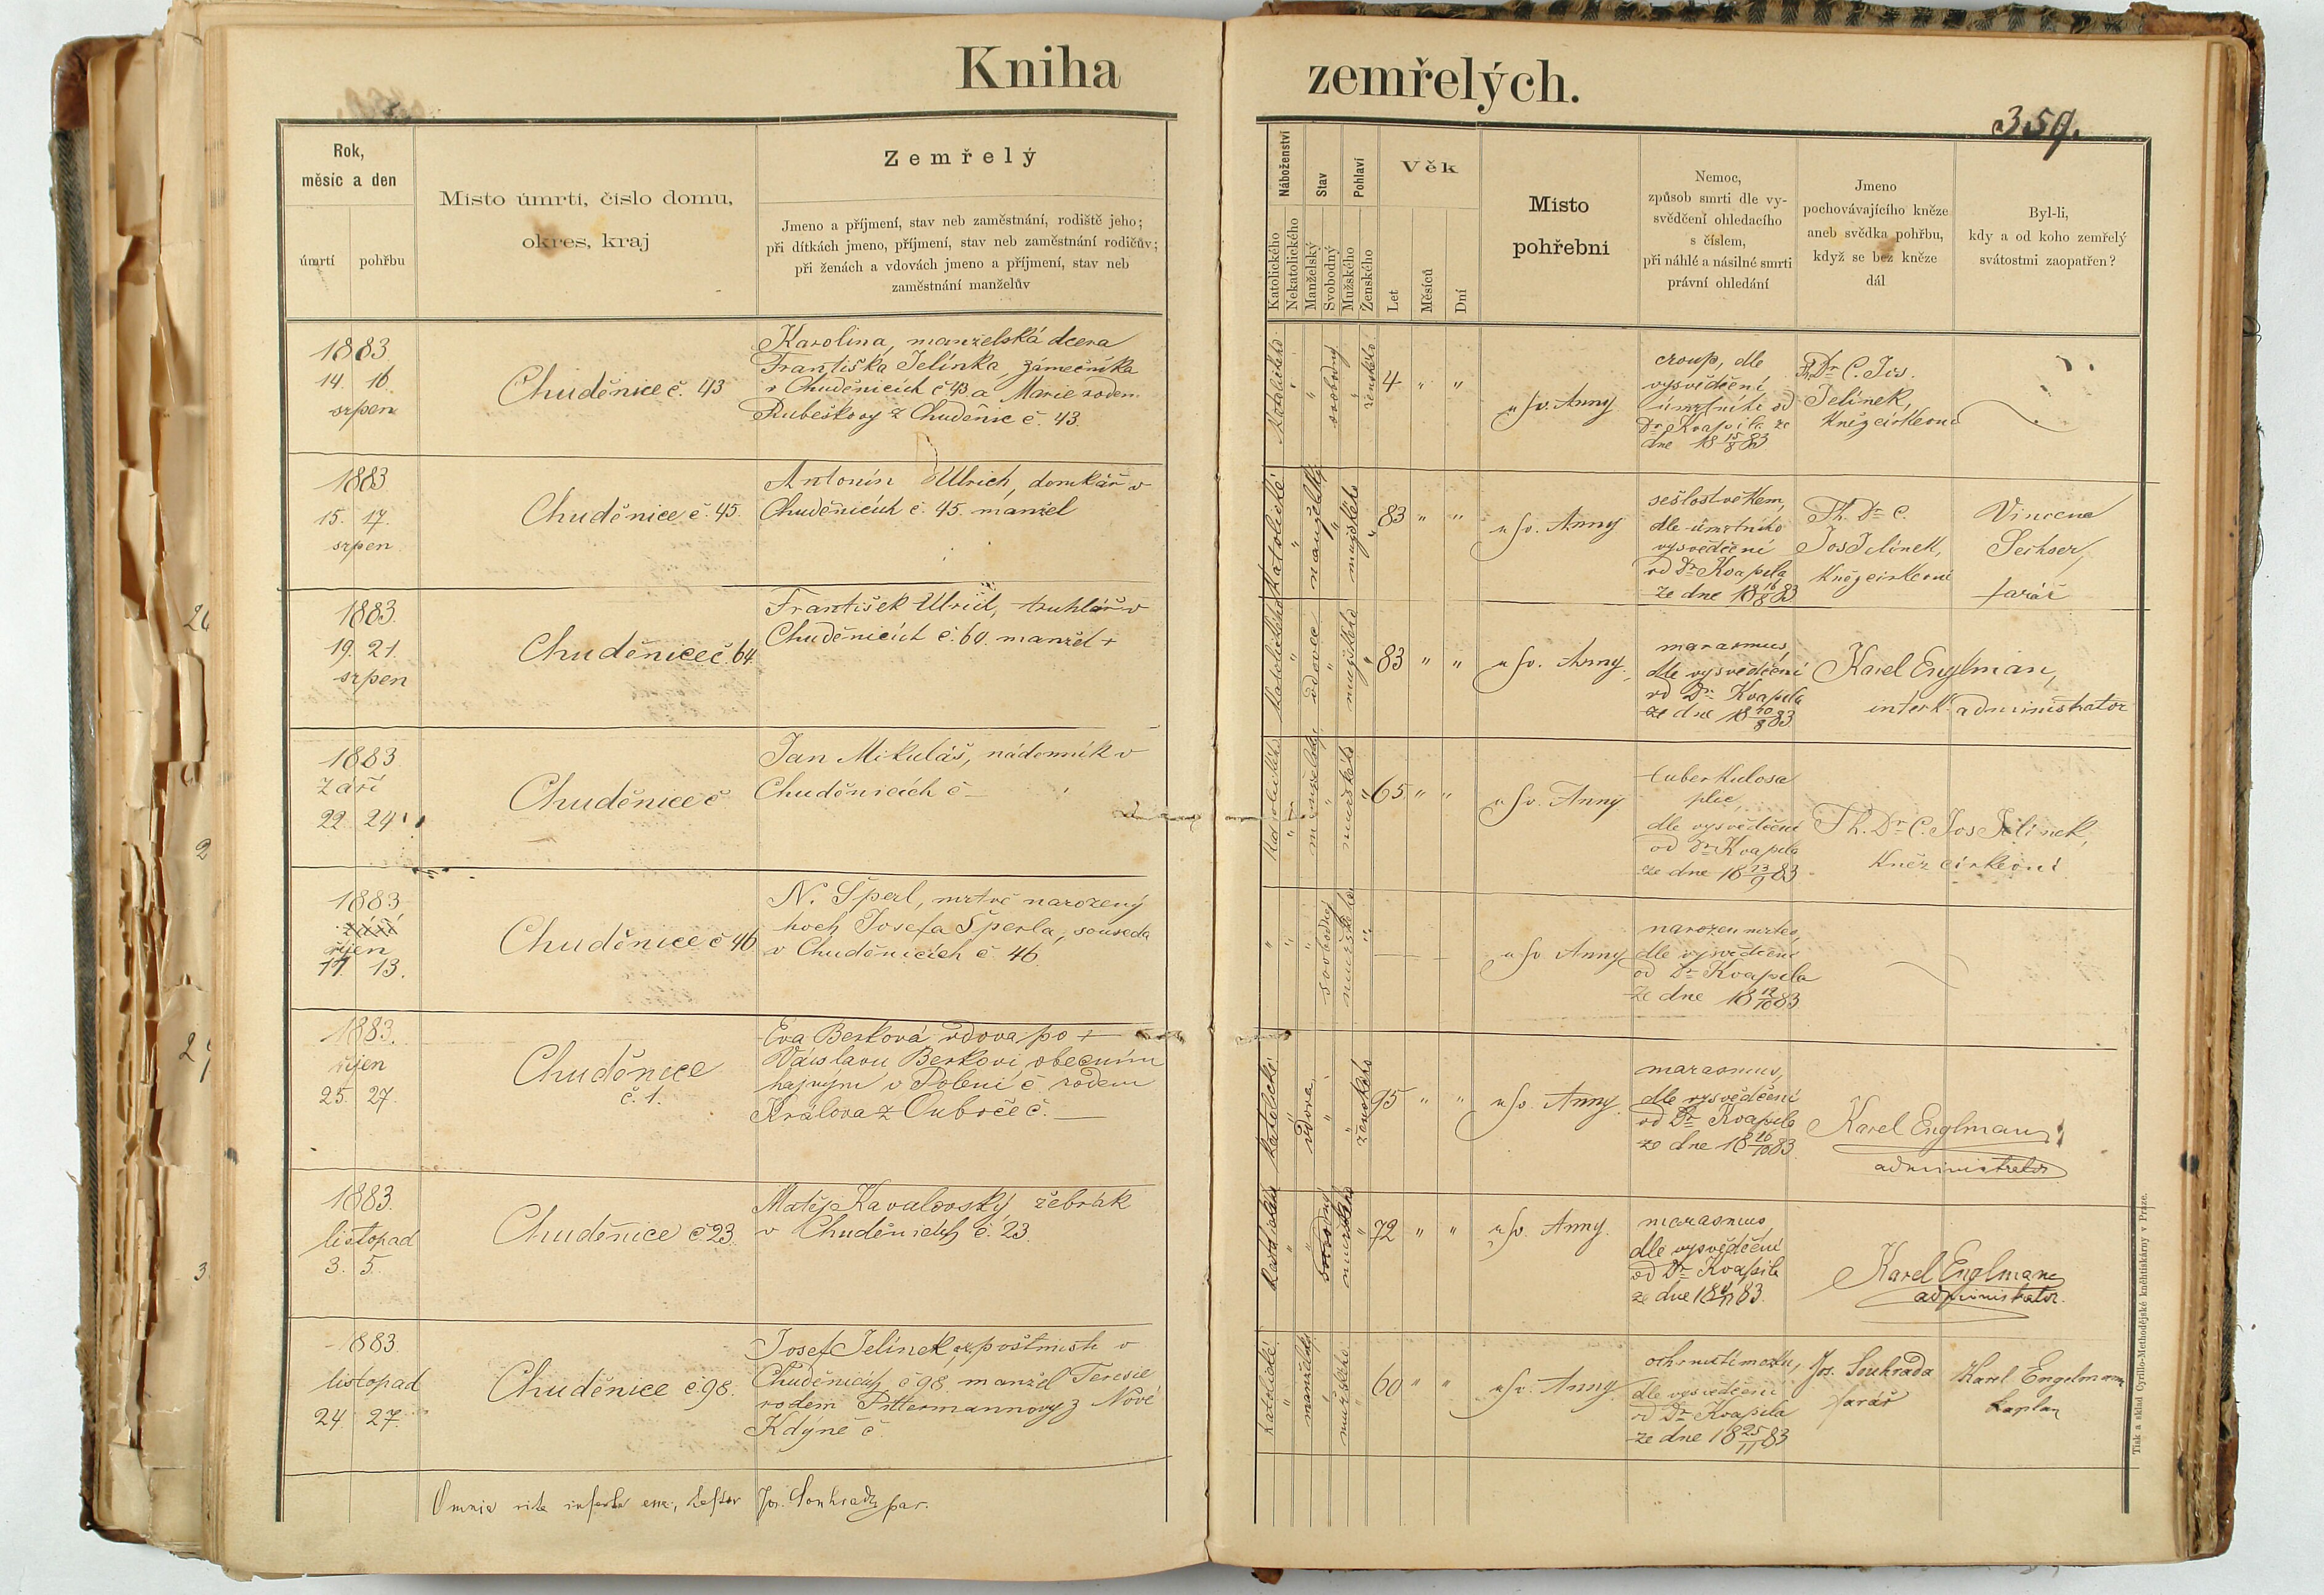 Kniha zemřelých.
359.
Rok,
měsíc a den
úmrtí
pohřbu
Místo úmrtí, číslo domu,
okres, kraj
Zemřelý
Jmeno a příjmení, stav neb zaměstnání, rodiště jeho;
při dítkách jmeno, příjmení, stav neb zaměstnání rodičův;
při ženách a vdovách jmeno a příjmení, stav neb
zaměstnání manželův
Náboženství
Katolického
Nekatolického
Stav
Manželský
Svobodný
Pohlaví
Mužského
Ženského
Věk
Let
Měsíců
Dní
Místo
pohřební
Nemoc,
způsob smrti dle vy-
svědčení ohledacího
s číslem,
při náhlé a násilné smrti
právní ohledání
Jmeno
pochovávajícího kněze
aneb svědka pohřbu,
když se bez kněze
dál
Byl-li,
kdy a od koho zemřelý
svátostmi zaopatřen?
1883.
14. 16.
srpen
Chuděnice č. 43
Karolina, manželská dcera
Františka Jelínka, zámečníka
v Chuděnicích č 43 a Marie rodem
Rubeškovy z Chuděnic č. 43.
Katolického
"
"
svobodný
"
ženského
4 " "
u sv. Anny
croup, dle
vysvědčení
úmrtního od
Dr Kvapila ze
dne 18 15/8 83
Th. Dr C. Jos.
Jelínek,
kněz církevní
1883
15. 17.
srpen
Chuděnice č. 45.
Antonín Ulrich, domkář v
Chuděnicích č. 45. manžel
Katolické
"
manželský
"
mužského
"
83 " "
u sv. Anny
sešlost věkem,
dle úmrtního
vysvědčení
od Dr Kvapila
ze dne 18 16/8 83
Th. Dr C.
Jos Jelínek,
kněz církevní
Vincenc
farář
1883.
19. 21.
srpen
Chuděnice č. 64
František Ulrich, truhlář v
Chuděnicích č. 60. manžel +
Katolického
"
vdovec
"
mužského
"
83 " "
u sv. Anny
marasmus,
dle vysvědčení
od Dr Kvapila
ze dne 18 20/8 83
Karel Englman,
interk. administrator
1883.
září
22. 24.
Chuděnice č
Jan Mikuláš, nádenník v
Chuděnicích č —
Katolického
"
manželský
"
mužského
"
65 " "
u sv. Anny
tuberkulosa
plic,
dle vysvědčení
od Dr Kvapila
ze dne 18 23/9 83
Th. Dr C. Jos Jelínek,
kněz církevní
1883
září
říjen
11. 13.
Chuděnice č 46
N. Šperl, mrtvě narozený
hoch Josefa Šperla, souseda
v Chuděnicích č. 46
"
"
"
svobodný
mužského
"
u sv. Anny
narozen mrtev,
dle vysvědčení
od Dr Kvapila
ze dne 18 12/10 83
1883.
říjen
25. 27.
Chuděnice
č. 1.
Eva Berková vdova po +
Václavu Berkovi, obecním
hajným v Poleni č rodem
Králova z Oubočc č. —
Katolické
"
vdova
"
"
ženského
95 " "
u sv. Anny.
marasmus,
dle vysvědčení
od Dr Kvapila
ze dne 18 26/10 83.
Karel Englman
administrator
1883.
listopad
3. 5.
Chuděnice č 23.
Matěj Kavalovský, žebrák
v Chuděnicích č. 23.
Katolické
"
"
svobodný
mužského
"
72 " "
u sv. Anny.
marasmus,
dle vysvědčení
od Dr Kvapila
ze dne 18 4/11 83.
Karel Englman
administrator.
1883.
listopad
24. 27.
Chuděnice č 98.
Josef Jelínek, poštmistr v
Chuděnicích č 98. manžel Teresie
rodem Pittermannovy z Nové
Kdýně č.
Katolické
"
manželský
"
mužského
"
60 " "
u sv. Anny
ochrnutí mozku,
dle vysvědčení
od Dr Kvapila
ze dne 18 25/11 83
Jos. Souhrada
farář
Karel Engelmann
kaplan
Omnia rite inserta esse, testor Jos. Souhrada par.
Tisk a sklad Cyrillo-Methodějské knihtiskárny v Praze.